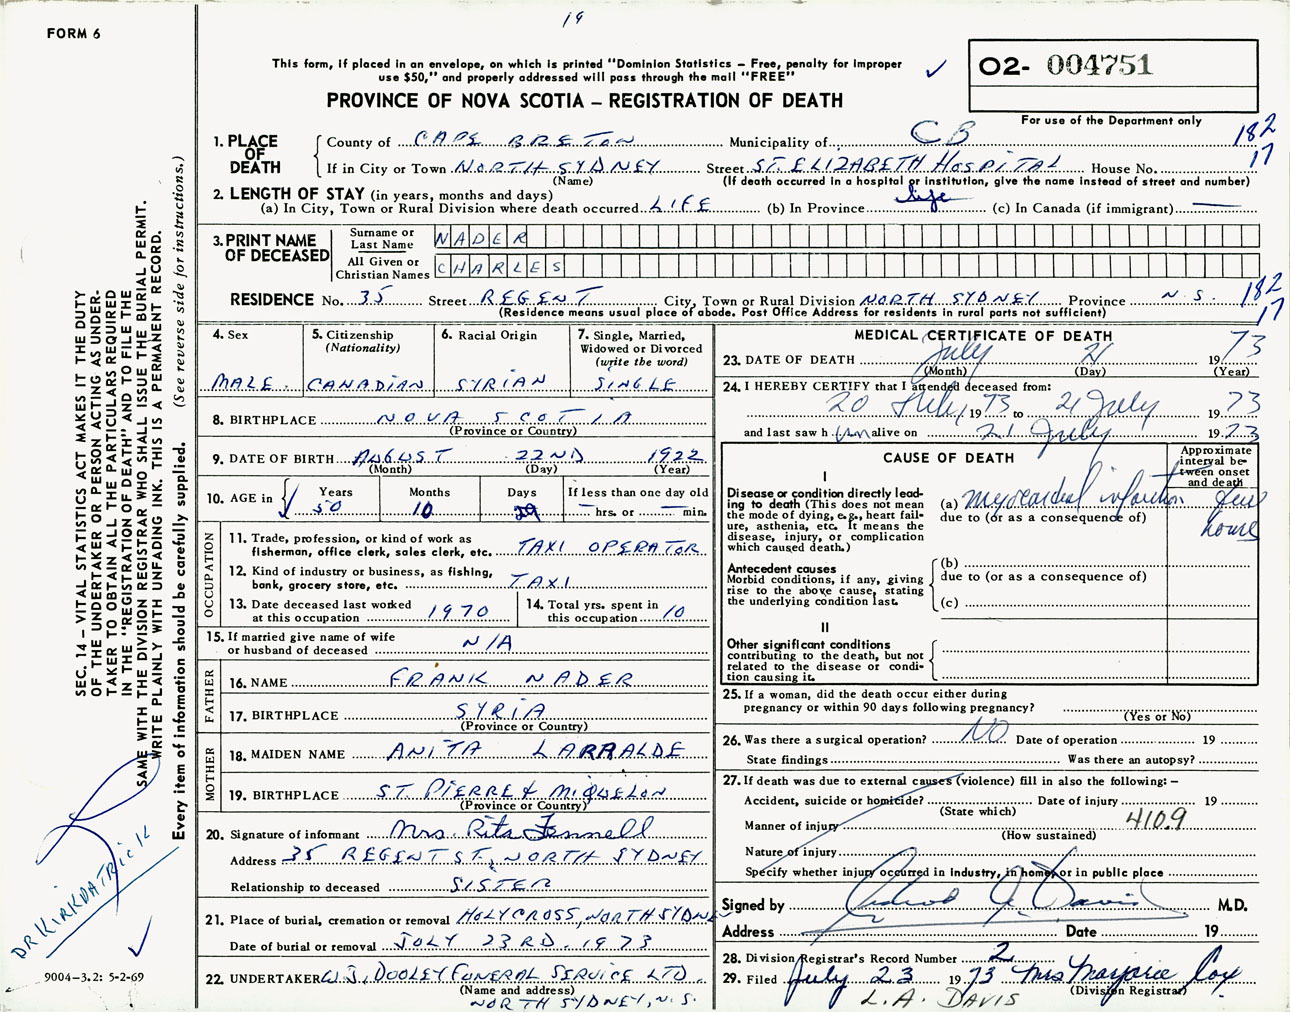 19
FORM 6
This form, if placed in an envelope, on which is printed "Dominion Statistics – Free, penalty for improper
use $50," and properly addressed will pass through the mail "FREE"
O2- 004751
For use of the Department only
PROVINCE OF NOVA SCOTIA – REGISTRATION OF DEATH
1. PLACE OF DEATH
County of CAPE BRETON Municipality of CB 182
If in City or Town NORTH SYDNEY Street ST. ELIZABETH HOSPITAL House No. 17
(Name) (If death occurred in a hospital or institution, give the name instead of street and number)
2. LENGTH OF STAY (in years, months and days)
(a) In City, Town or Rural Division where death occurred LIFE (b) In Province life (c) In Canada (if immigrant) —
3. PRINT NAME OF DECEASED
Surname or Last Name NADER
All Given or Christian Names CHARLES
RESIDENCE No. 35 Street REGENT City, Town or Rural Division NORTH SYDNEY Province N.S. 182
17
(Residence means usual place of abode. Post Office Address for residents in rural parts not sufficient)
4. Sex
MALE
5. Citizenship
(Nationality)
CANADIAN
6. Racial Origin
SYRIAN
7. Single, Married,
Widowed or Divorced
(write the word)
SINGLE
8. BIRTHPLACE NOVA SCOTIA
(Province or Country)
9. DATE OF BIRTH AUGUST 22ND 1922
(Month) (Day) (Year)
10. AGE in Years Months Days If less than one day old
50 10 29 — hrs. or — min.
OCCUPATION
11. Trade, profession, or kind of work as
fisherman, office clerk, sales clerk, etc. TAXI OPERATOR
12. Kind of industry or business, as fishing,
bank, grocery store, etc. TAXI
13. Date deceased last worked
at this occupation 1970
14. Total yrs. spent in
this occupation 10
15. If married give name of wife
or husband of deceased N/A
FATHER
16. NAME FRANK NADER
17. BIRTHPLACE SYRIA
(Province or Country)
MOTHER
18. MAIDEN NAME ANITA LARRALDE
19. BIRTHPLACE ST. PIERRE & MIQUELON
(Province or Country)
20. Signature of informant Mrs. Rita Fennell
Address 35 REGENT ST., NORTH SYDNEY
Relationship to deceased SISTER
21. Place of burial, cremation or removal HOLY CROSS, NORTH SYDNEY
Date of burial or removal JULY 23RD. 1973
22. UNDERTAKER W.J. DOOLEY FUNERAL SERVICE LTD.
(Name and address)
NORTH SYDNEY, N.S.
MEDICAL CERTIFICATE OF DEATH
23. DATE OF DEATH July 21 1973
(Month) (Day) (Year)
24. I HEREBY CERTIFY that I attended deceased from:
20 July 1973 to 21 July 1973
and last saw h im alive on 21 July 1973
CAUSE OF DEATH
Approximate
interval be-
tween onset
and death
I
Disease or condition directly lead-
ing to death (This does not mean
the mode of dying, e.g., heart fail-
ure, asthenia, etc. It means the
disease, injury, or complication
which caused death.)
(a) myocardial infarction few hours
due to (or as a consequence of)
Antecedent causes
Morbid conditions, if any, giving
rise to the above cause, stating
the underlying condition last.
(b)
due to (or as a consequence of)
(c)
II
Other significant conditions
contributing to the death, but not
related to the disease or condi-
tion causing it.
25. If a woman, did the death occur either during
pregnancy or within 90 days following pregnancy?
(Yes or No)
26. Was there a surgical operation? NO Date of operation 19
State findings Was there an autopsy?
27. If death was due to external causes (violence) fill in also the following: –
Accident, suicide or homicide? Date of injury 19
(State which)
Manner of injury 410.9
(How sustained)
Nature of injury
Specify whether injury occurred in industry, in home, or in public place
Signed by Davis M.D.
Address Date 19
28. Division Registrar's Record Number 2
29. Filed July 23 1973 Mrs Marjorie Cox
(Division Registrar)
L.A. DAVIS
SEC. 14 – VITAL STATISTICS ACT MAKES IT THE DUTY
OF THE UNDERTAKER OR PERSON ACTING AS UNDER-
TAKER TO OBTAIN ALL THE PARTICULARS REQUIRED
IN THE "REGISTRATION OF DEATH" AND TO FILE THE
SAME WITH THE DIVISION REGISTRAR WHO SHALL ISSUE THE BURIAL PERMIT.
WRITE PLAINLY WITH UNFADING INK. THIS IS A PERMANENT RECORD.
Every item of information should be carefully supplied. (See reverse side for instructions.)
DR KIRKPATRICK
9004–3.2: 5-2-69